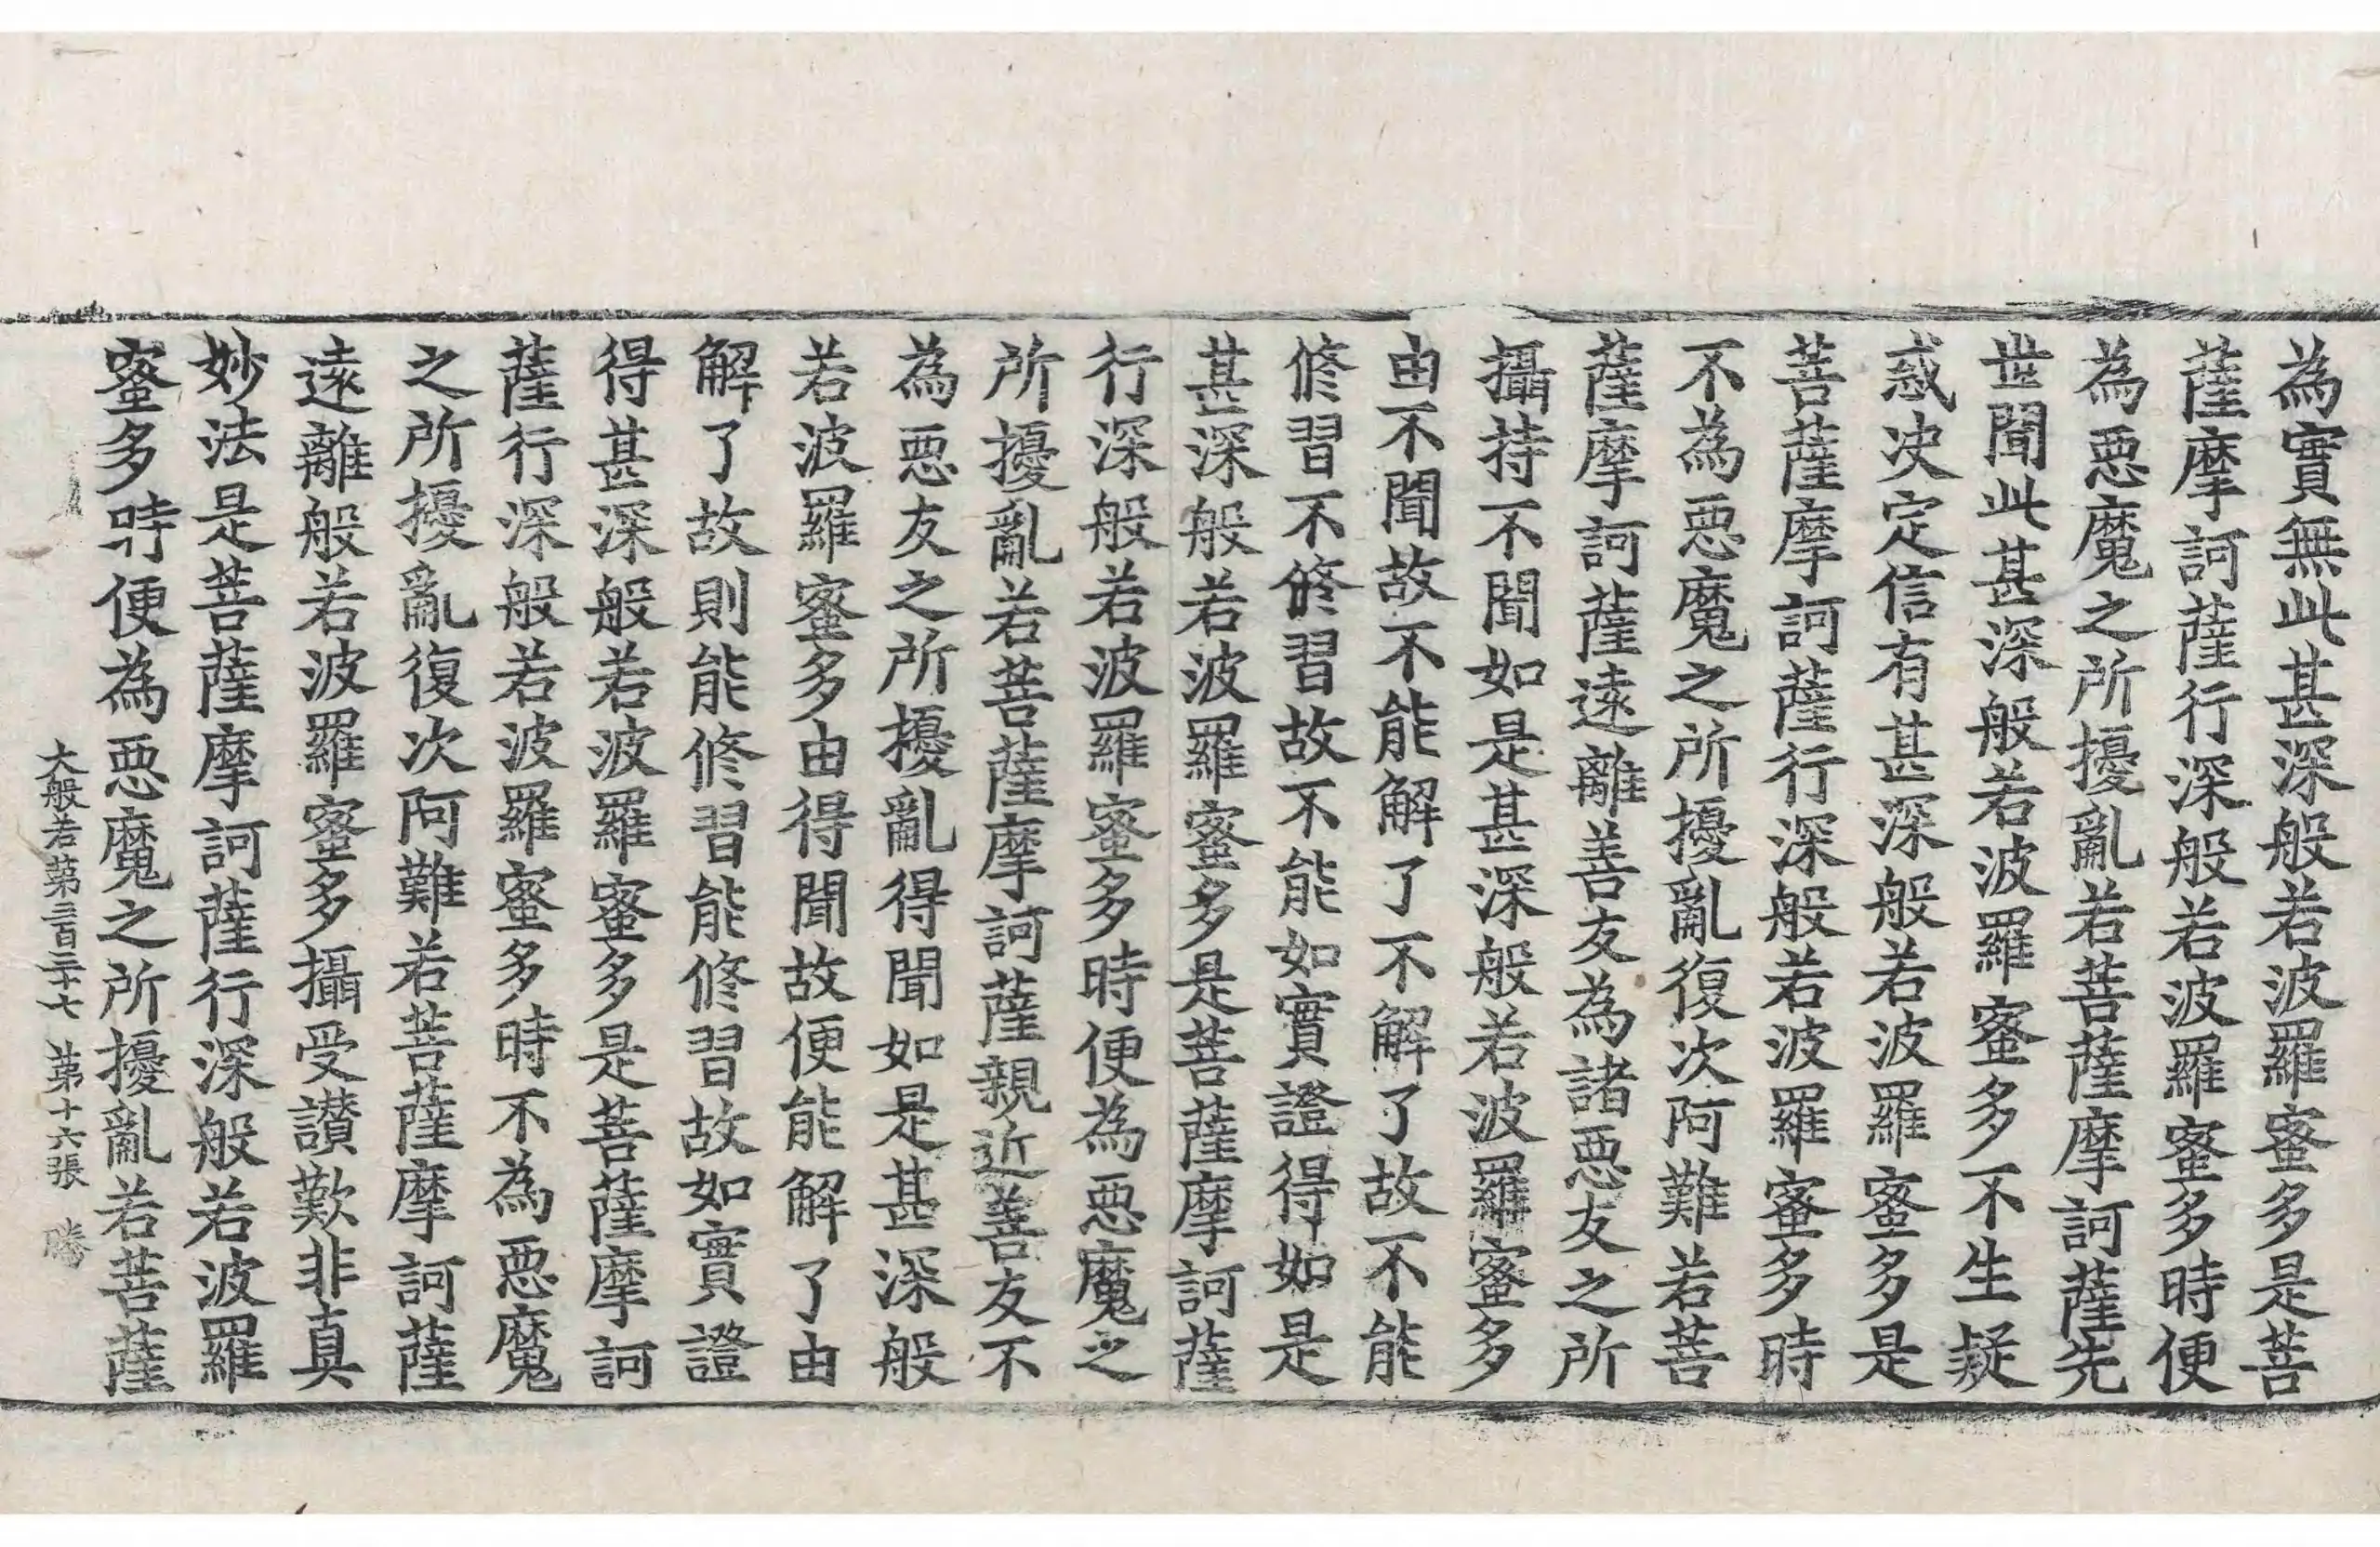 為實無此甚深般若波羅蜜多是菩
薩摩訶薩行深般若波羅蜜多時便
為惡魔之所擾亂若菩薩摩訶薩先
世聞此甚深般若波羅蜜多不生疑
惑决定信有甚深般若波羅蜜多是
菩薩摩訶薩行深般若波羅蜜多時
不為惡魔之所擾亂復次阿難若菩
薩摩訶薩遠離善友為諸惡友之所
攝持不聞如是甚深般若波羅蜜多
由不聞故不能解了不解了故不能
修習不修習故不能如實證得如是
甚深般若波羅蜜多是菩薩摩訶薩
行深般若波羅蜜多時便為惡魔之
所擾亂若菩薩摩訶薩親近善友不
為惡友之所擾亂得聞如是甚深般
若波羅蜜多由得聞故便能解了由
解了故則能修習能修習故如實證
得甚深般若波羅蜜多是菩薩摩訶
薩行深般若波羅蜜多時不為惡魔
之所擾亂復次阿難若菩薩摩訶薩
遠離般若波羅蜜多攝受讃歎非真
妙法是菩薩摩訶薩行深般若波羅
蜜多時便為惡魔之所擾亂若菩薩
大般若苐三百三十七 苐十六張